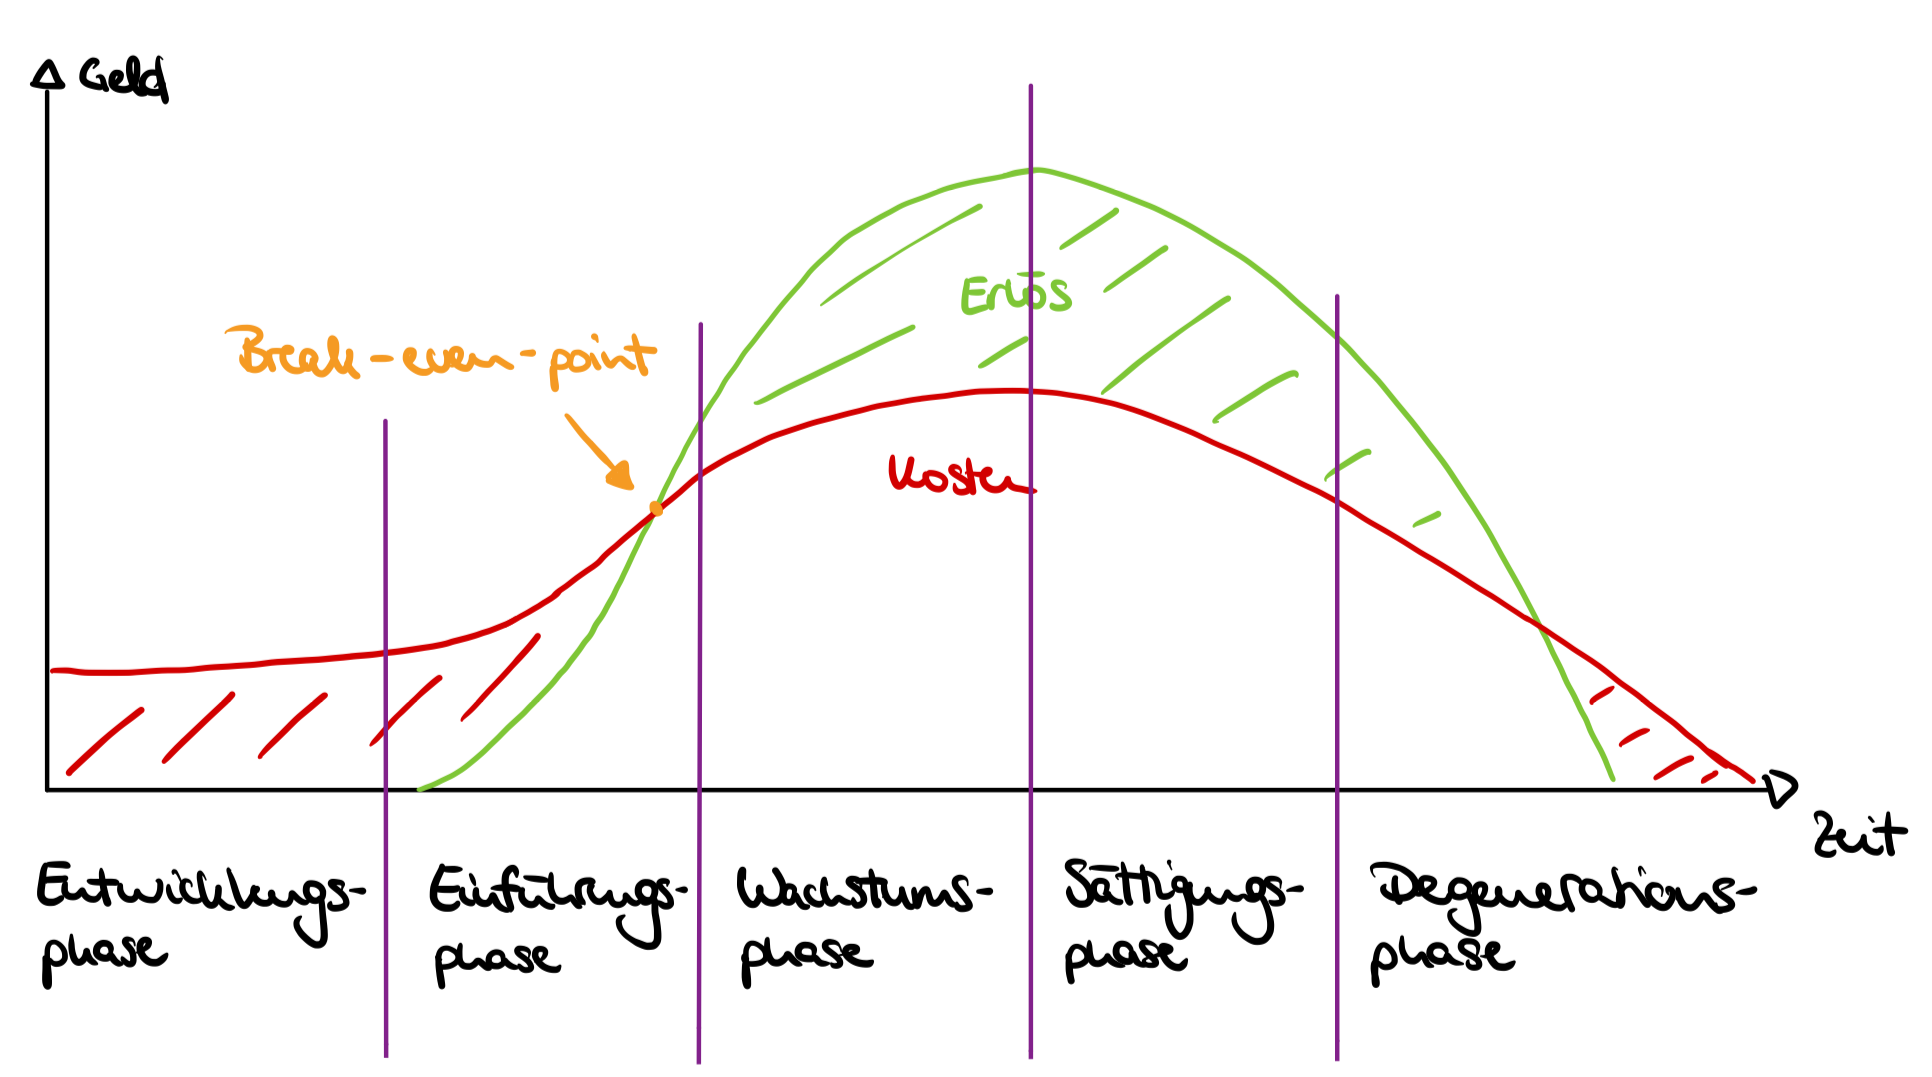 Geld
Break-even-point
Erlös
Kosten
Zeit
Entwicklungs-
phase
Einführungs-
phase
Wachstums-
phase
Sättigungs-
phase
Degenerations-
phase